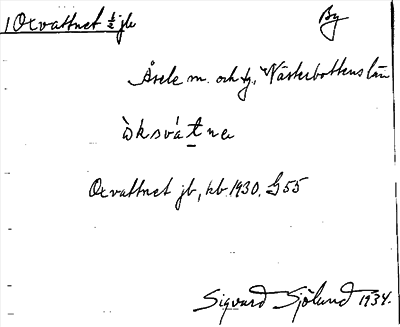 1 Oxvattnet ½ jb By
Åsele sn. och tg, Västerbottens län
òksvátnɐ
Oxvattnet jb, kb. 1930. G55
Sigvard Sjölund 1934.